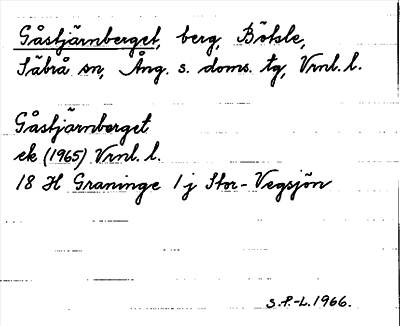 Gåstjärnberget, berg, Bölsle,
Säbrå sn, Ång. s. doms. tg, Vrnl. l.
Gåstjärnberget
ek (1965) Vrnl. l.
18 H Graninge 1 j Stor-Vegsjön
S.P.-L. 1966.